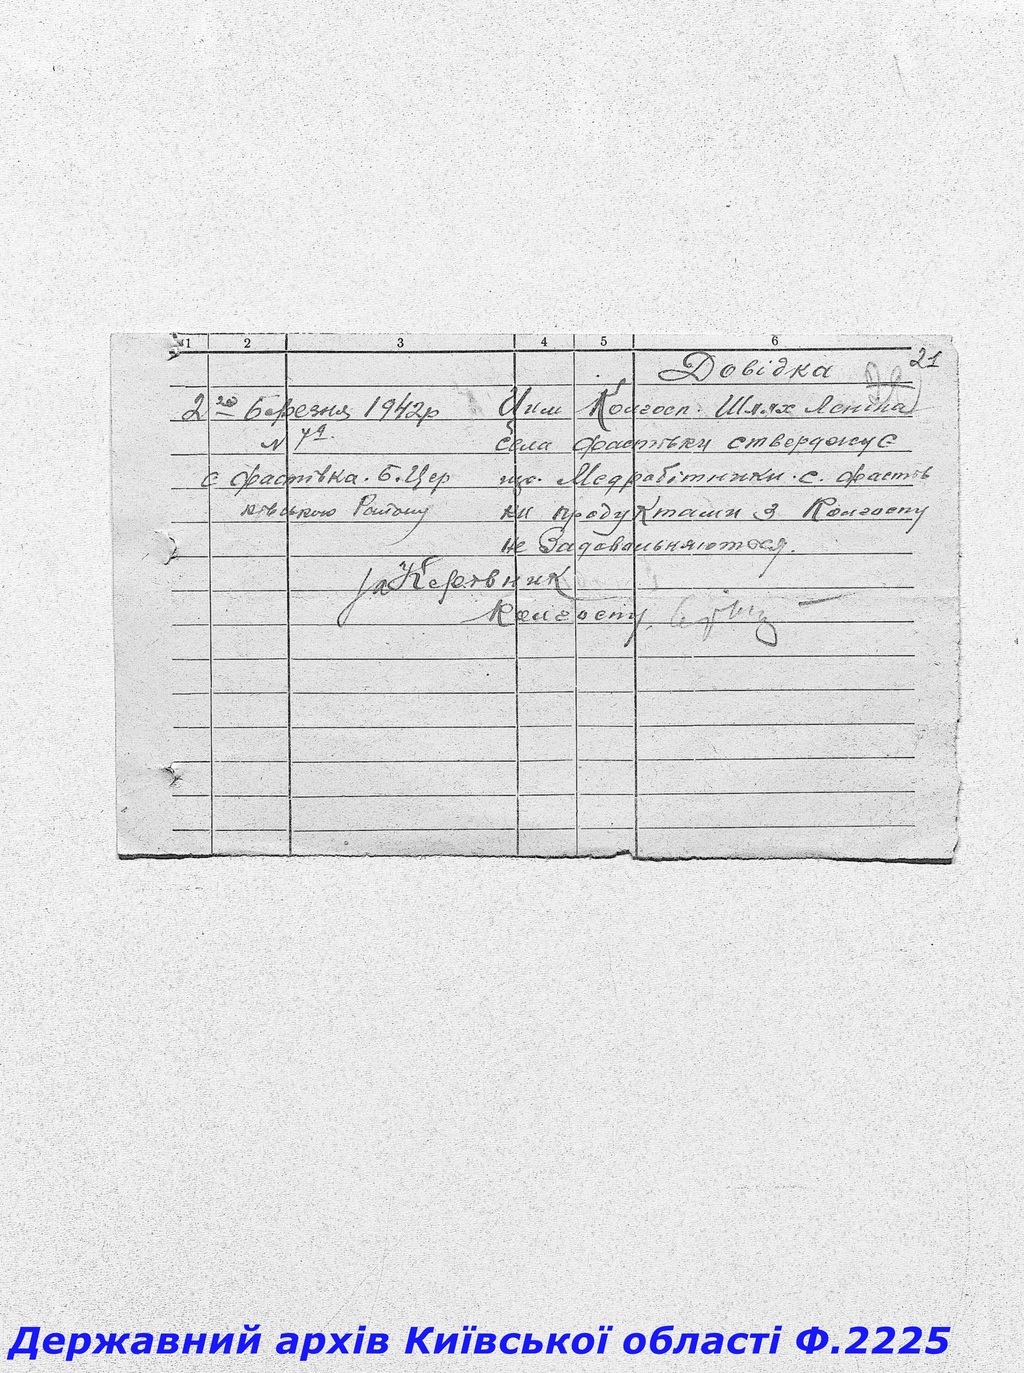 1 2 3 4 5 6
21
Довідка
2го Березня 1942р
N 71.
с Фастівка. Б. Цер
ківського Району
Цим Колгосп. Шлях Леніна
села Фастівки стверджує
що. Медробітники. с. Фастів
ки продуктами з Колгоспу
не Задовольняються.
Керівник
Колгоспу.
Державний архів Київської області Ф.2225